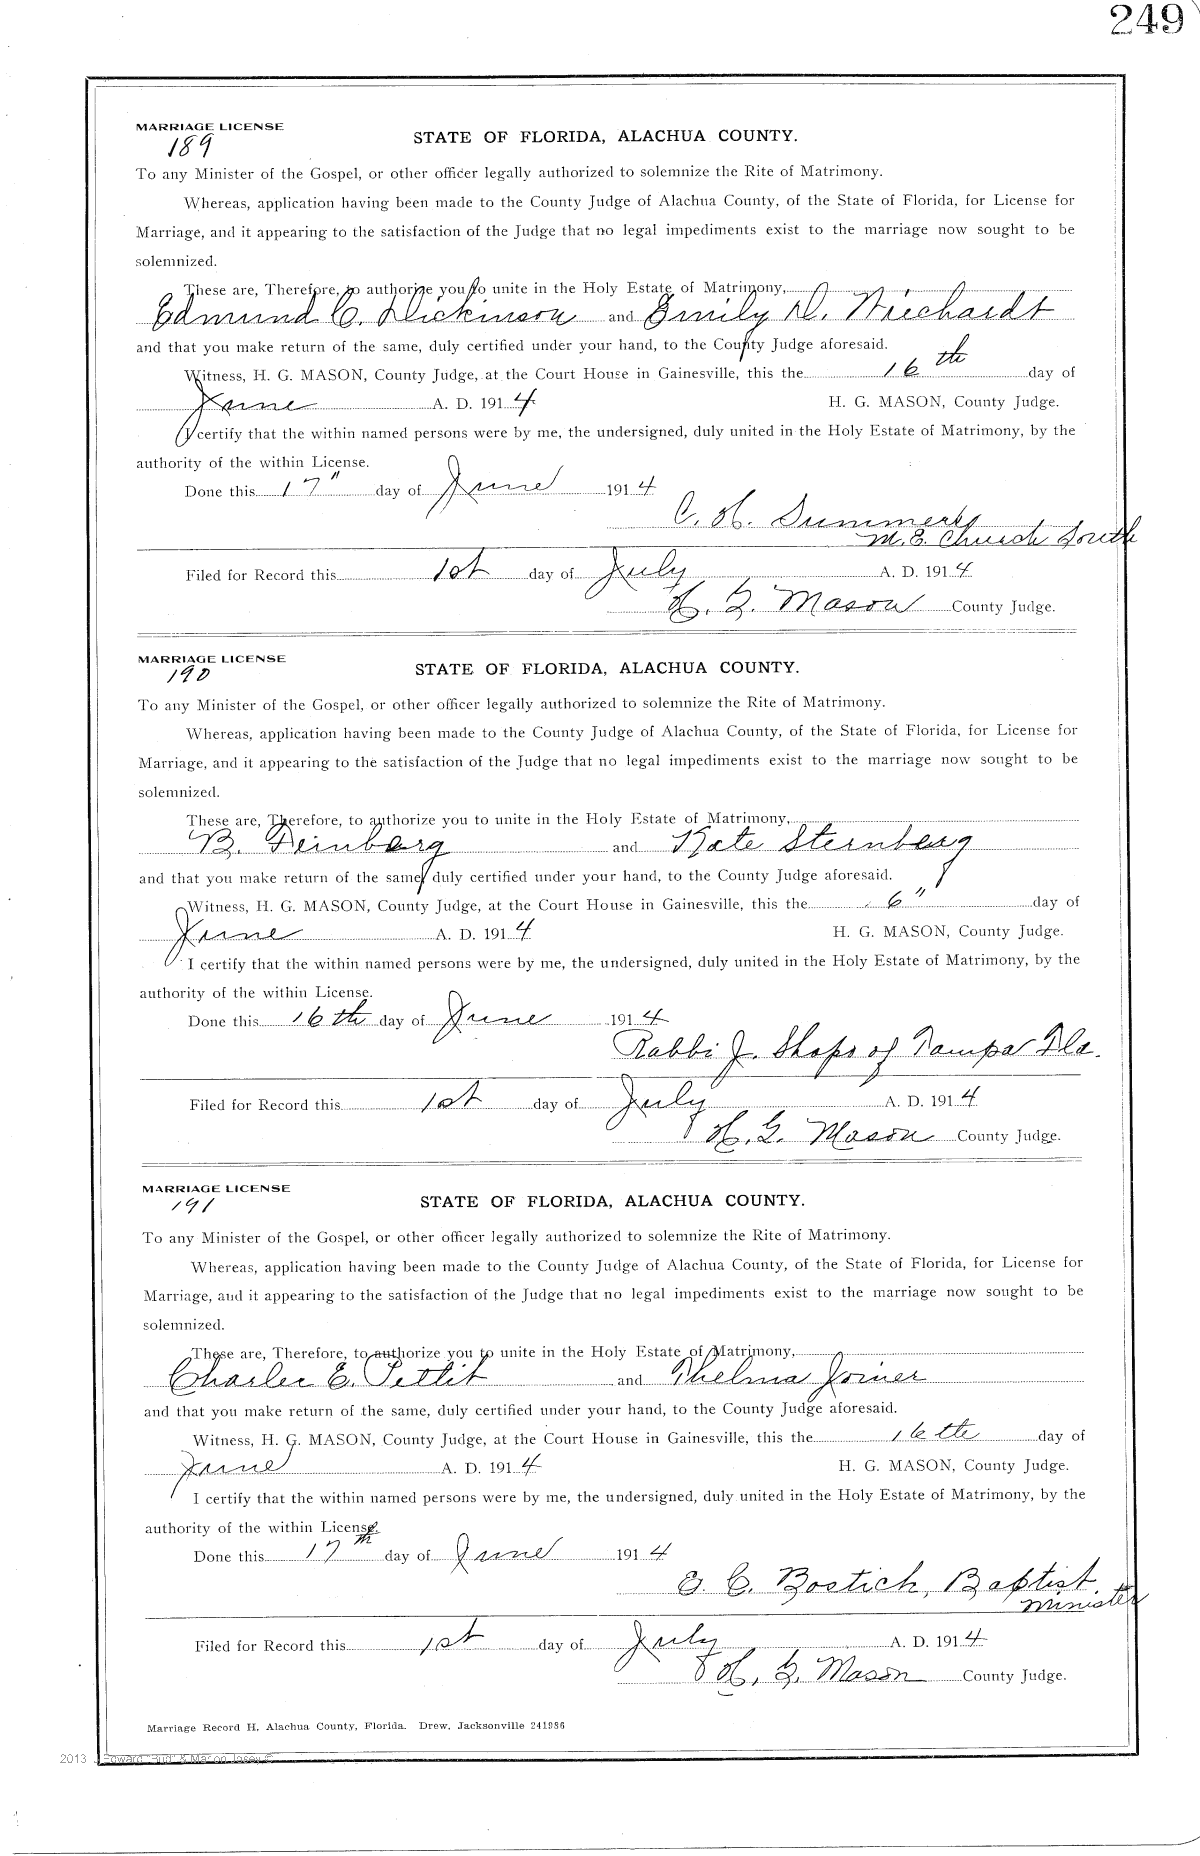 249
MARRIAGE LICENSE
189
STATE OF FLORIDA, ALACHUA COUNTY.
To any Minister of the Gospel, or other officer legally authorized to solemnize the Rite of Matrimony.
Whereas, application having been made to the County Judge of Alachua County, of the State of Florida, for License for
Marriage, and it appearing to the satisfaction of the Judge that no legal impediments exist to the marriage now sought to be
solemnized.
These are, Therefore, to authorize you to unite in the Holy Estate of Matrimony,
Edmund C. Dickinson and Emily D. Wiechardt
and that you make return of the same, duly certified under your hand, to the County Judge aforesaid.
Witness, H. G. MASON, County Judge, at the Court House in Gainesville, this the 16th day of
June A. D. 1914 H. G. MASON, County Judge.
I certify that the within named persons were by me, the undersigned, duly united in the Holy Estate of Matrimony, by the
authority of the within License.
Done this 17" day of June 1914
C. H. Summers
M.E. Church South
Filed for Record this 1st day of July A. D. 1914
H. G. Mason County Judge.
MARRIAGE LICENSE
190
STATE OF FLORIDA, ALACHUA COUNTY.
To any Minister of the Gospel, or other officer legally authorized to solemnize the Rite of Matrimony.
Whereas, application having been made to the County Judge of Alachua County, of the State of Florida, for License for
Marriage, and it appearing to the satisfaction of the Judge that no legal impediments exist to the marriage now sought to be
solemnized.
These are, Therefore, to authorize you to unite in the Holy Estate of Matrimony,
B. Feinberg and Kate Sternberg
and that you make return of the same, duly certified under your hand, to the County Judge aforesaid.
Witness, H. G. MASON, County Judge, at the Court House in Gainesville, this the 6" day of
June A. D. 1914 H. G. MASON, County Judge.
I certify that the within named persons were by me, the undersigned, duly united in the Holy Estate of Matrimony, by the
authority of the within License.
Done this 16th day of June 1914
Rabbi J. Shapo of Tampa Fla.
Filed for Record this 1st day of July A. D. 1914
H. G. Mason County Judge.
MARRIAGE LICENSE
191
STATE OF FLORIDA, ALACHUA COUNTY.
To any Minister of the Gospel, or other officer legally authorized to solemnize the Rite of Matrimony.
Whereas, application having been made to the County Judge of Alachua County, of the State of Florida, for License for
Marriage, and it appearing to the satisfaction of the Judge that no legal impediments exist to the marriage now sought to be
solemnized.
These are, Therefore, to authorize you to unite in the Holy Estate of Matrimony,
Charles E. Pettit and Thelma Joiner
and that you make return of the same, duly certified under your hand, to the County Judge aforesaid.
Witness, H. G. MASON, County Judge, at the Court House in Gainesville, this the 16th day of
June A. D. 1914 H. G. MASON, County Judge.
I certify that the within named persons were by me, the undersigned, duly united in the Holy Estate of Matrimony, by the
authority of the within License.
Done this 17th day of June 1914
E. C. Bostick, Baptist
Minister
Filed for Record this 1st day of July A. D. 1914
H. G. Mason County Judge.
Marriage Record H, Alachua County, Florida. Drew, Jacksonville 241986
2013 Edward "Bud" &